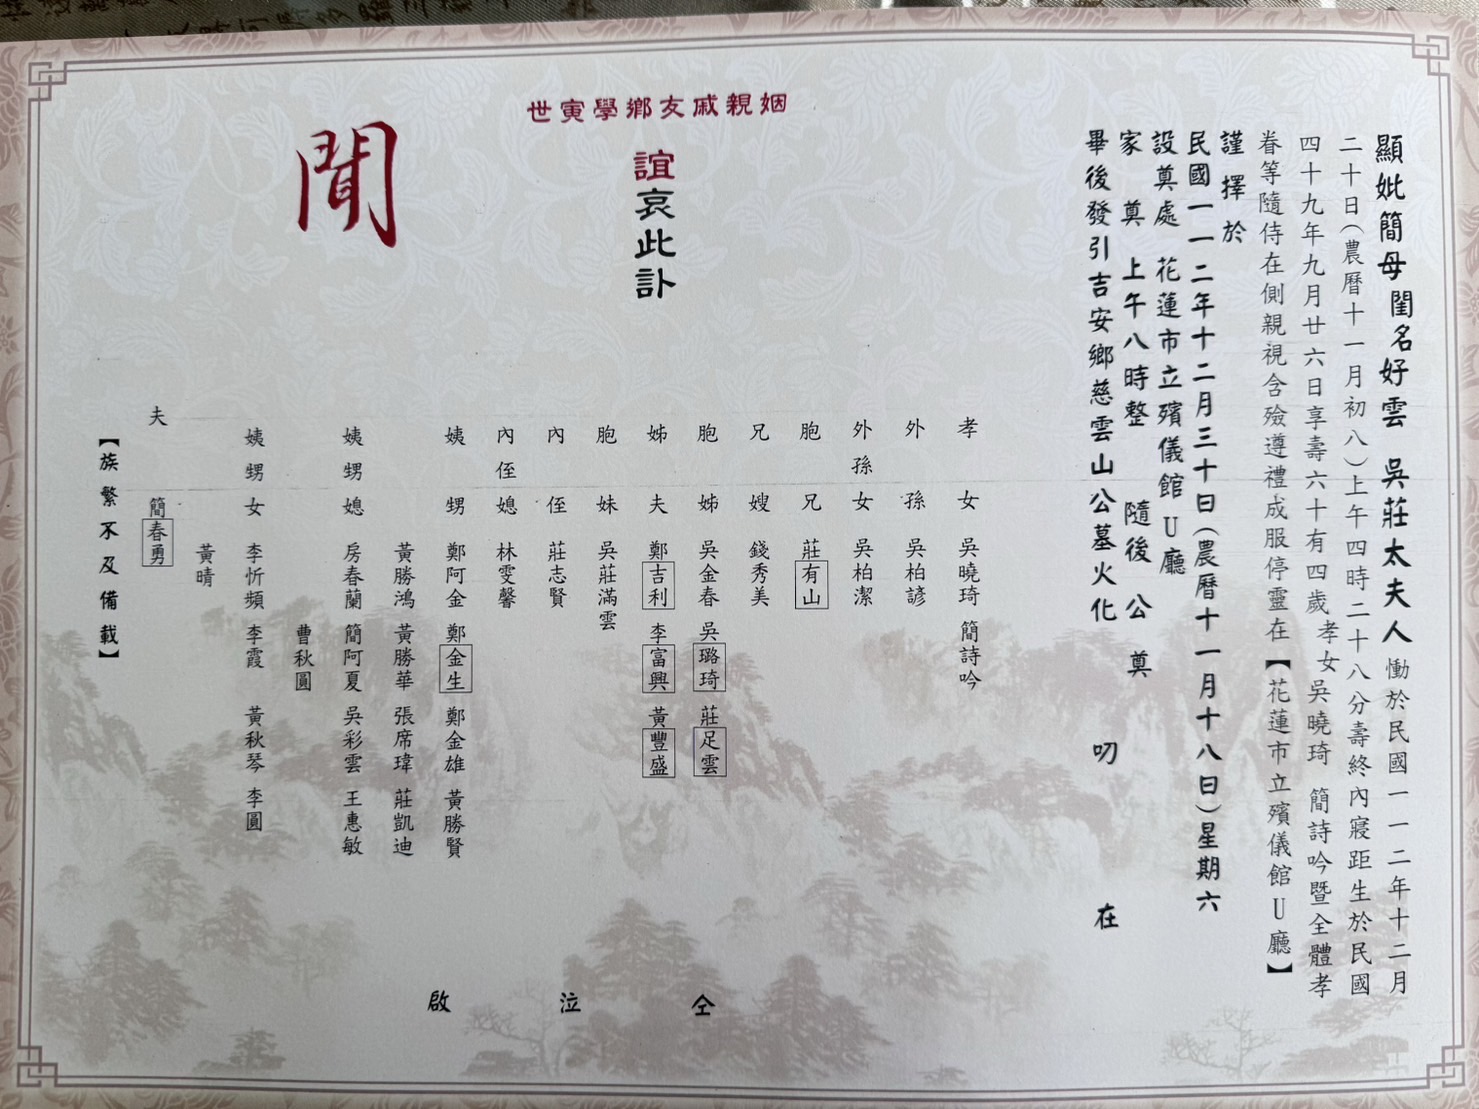 顯妣簡母閨名好雲 吳莊太夫人慟於民國一一二年十二月
二十日(農曆十一月初八)上午四時二十八分壽終內寢距生於民國
四十九年九月廿六日享壽六十有四歲孝女 吳曉琦 簡詩吟暨全體孝
眷等隨侍在側親視含殮遵禮成服停靈在【花蓮市立殯儀館U廳】
謹擇於
民國一一二年十二月三十日(農曆十一月十八日)星期六
設奠處 花蓮市立殯儀館U廳
家奠 上午八時整 隨後 公奠
畢後發引吉安鄉慈雲山公墓火化 叨在
姻親戚友鄉學寅世
誼哀此訃
聞
孝女 吳曉琦 簡詩吟
外孫 吳柏諺
外孫女 吳柏潔
胞兄 莊有山
兄嫂 錢秀美
胞姊 吳金春 吳璐琦 莊足雲
姊夫 鄭吉利 李富興 黃豐盛
胞妹 吳莊滿雲
內侄 莊志賢
內侄媳 林雯馨
姨甥 鄭阿金 鄭金生 鄭金雄 黃勝賢
黃勝鴻 黃勝華 張席瑋 莊凱迪
姨甥媳 房春蘭 簡阿夏 吳彩雲 王惠敏
曹秋圓
姨甥女 李忻頻 李霞 黃秋琴 李圓
黃晴
夫 簡春勇
【族繁不及備載】
仝 泣 啟